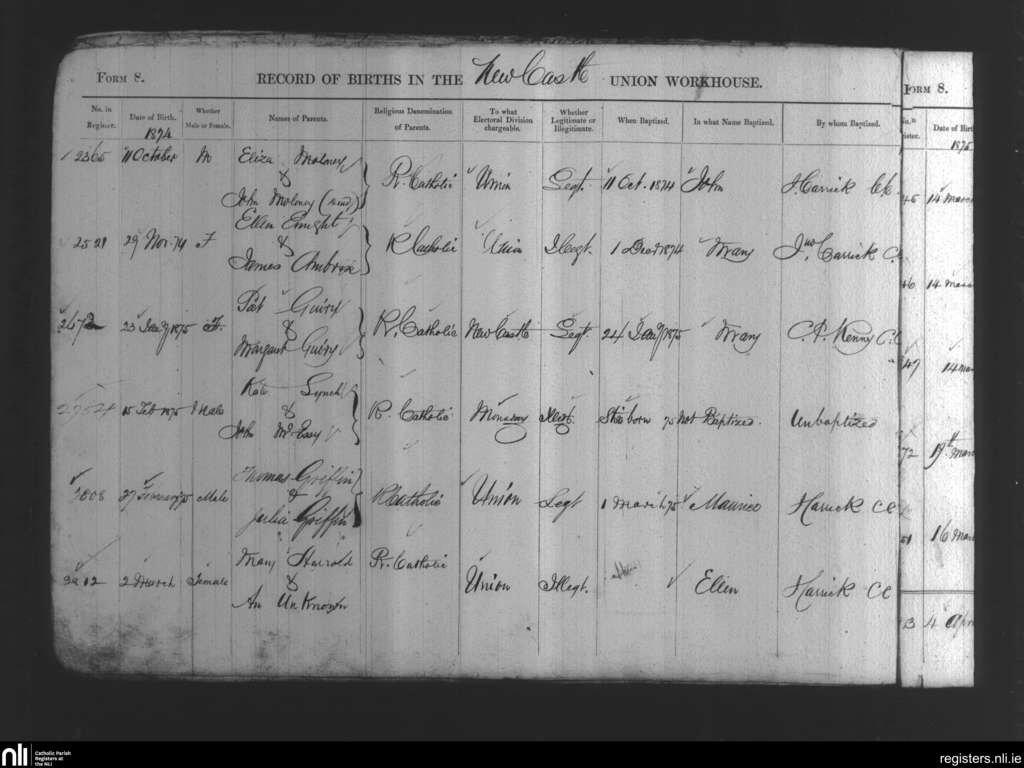 FORM 8.
RECORD OF BIRTHS IN THE NewCastle UNION WORKHOUSE.
No. in Register. Date of Birth. Whether Male or Female. Names of Parents. Religious Denomination of Parents. To what Electoral Division chargeable. Whether Legitimate or Illegitimate. When Baptized. In what Name Baptized. By whom Baptized.
1874
11 October M Eliza Moloney
& R. Catholic Union Legt. 11 Oct. 1874 John J. Carrick CC.
John Moloney
Ellen Enright
2521 29 Nov. 74 F & R Catholic Union Illegt. 1 Decr 1874 Mary Jno. Carrick C.C.
James Ambrose
Pat Guiry
23 Jany 1875 F. & R. Catholic NewCastle Legt. 24 Jany 1875 Mary C. P. Kenny C.C.
Margaret Guiry
Kate Lynch
15 Feb 1875 Male & R. Catholic Monagay Illegt. Still born 75 Not Baptized. Unbaptized
John
Thomas Griffin
27 February 75 Male & R Catholic Union Legt 1 March 75 Maurice CC
Julia Griffin
Mary Harrold R. Catholic
2 March Female & Union Illegt. Ellen CC
An UnKnown
FORM 8.
Date of Birth
1875
14 March
14 March
47 14 Mar
72 19th Mar
16 Mar
4 Apr
nli
Catholic Parish
Registers at
the NLI
registers.nli.ie